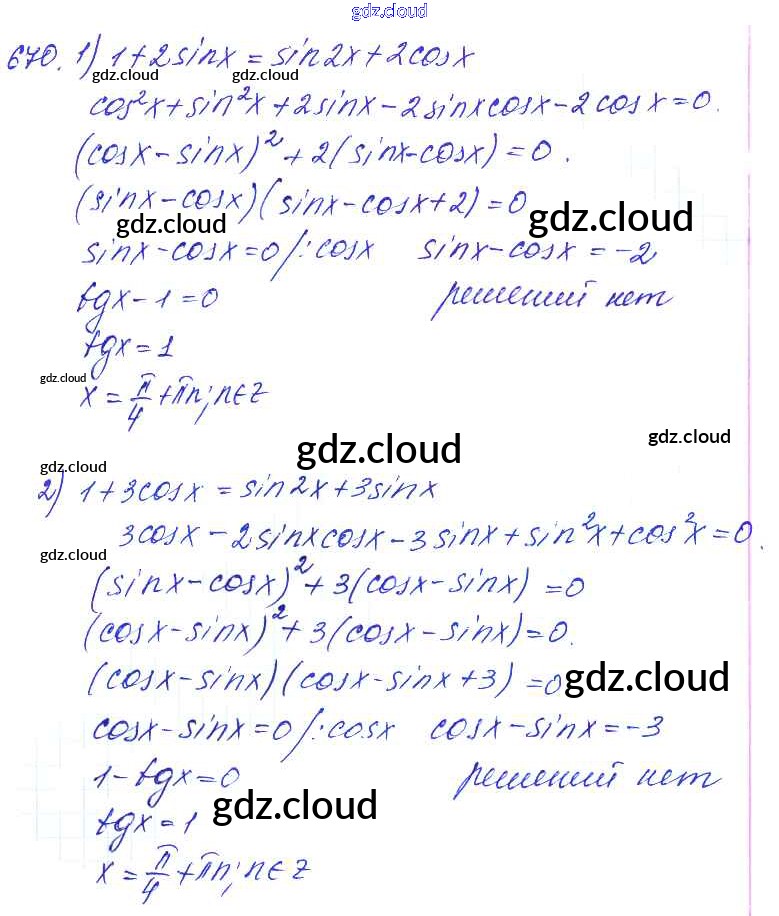 gdz.cloud
670. 1) 1+2sinx = sin2x+2cosx
gdz.cloud gdz.cloud
cos²x+sin²x+2sinx-2sinxcosx-2cosx=0.
(cosx-sinx)²+2(sinx-cosx)=0.
(sinx-cosx)(sinx-cosx+2)=0
gdz.cloud gdz.cloud
sinx-cosx=0/:cosx sinx-cosx=-2
tgx-1=0 решений нет
tgx=1
gdz.cloud
x=π/4+πn, n∈z
gdz.cloud gdz.cloud
gdz.cloud
2) 1+3cosx=sin2x+3sinx
3cosx-2sinxcosx-3sinx+sin²x+cos²x=0.
gdz.cloud
(sinx-cosx)²+3(cosx-sinx)=0
(cosx-sinx)²+3(cosx-sinx)=0.
(cosx-sinx)(cosx-sinx+3)=0 gdz.cloud
cosx-sinx=0/:cosx cosx-sinx=-3
1-tgx=0 решений нет
gdz.cloud
tgx=1
x=π/4+πn, n∈z